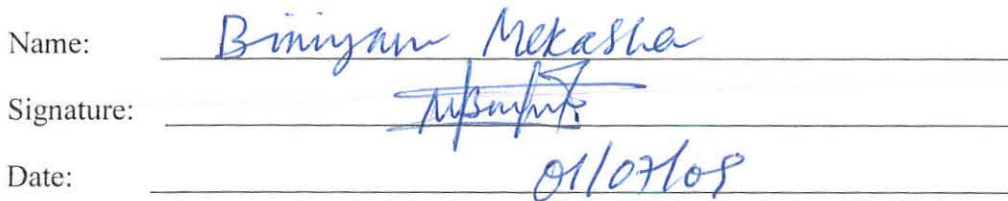 Name: Biniyam Mekasha
Signature:
Date: 01/07/09